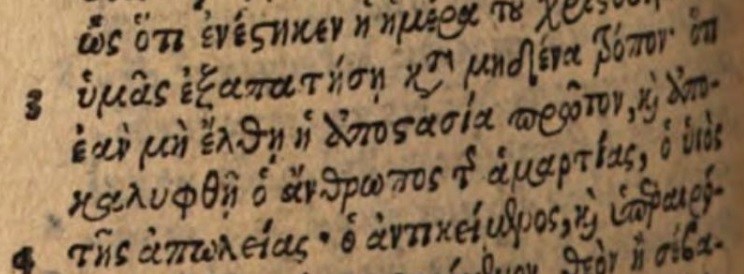 ὡς ὅτι ἐνέστηκεν ἡ ἡμέρα τοῦ χριστοῦ
3 ὑμᾶς ἐξαπατήσῃ κατὰ μηδένα τρόπον· ὅτι
ἐὰν μὴ ἔλθῃ ἡ ἀποστασία πρῶτον, καὶ ἀπο-
καλυφθῇ ὁ ἄνθρωπος τῆς ἁμαρτίας, ὁ υἱὸς
4 τῆς ἀπωλείας· ὁ ἀντικείμενος, καὶ ὑπεραιρό-
θεὸν ἢ σέβα-